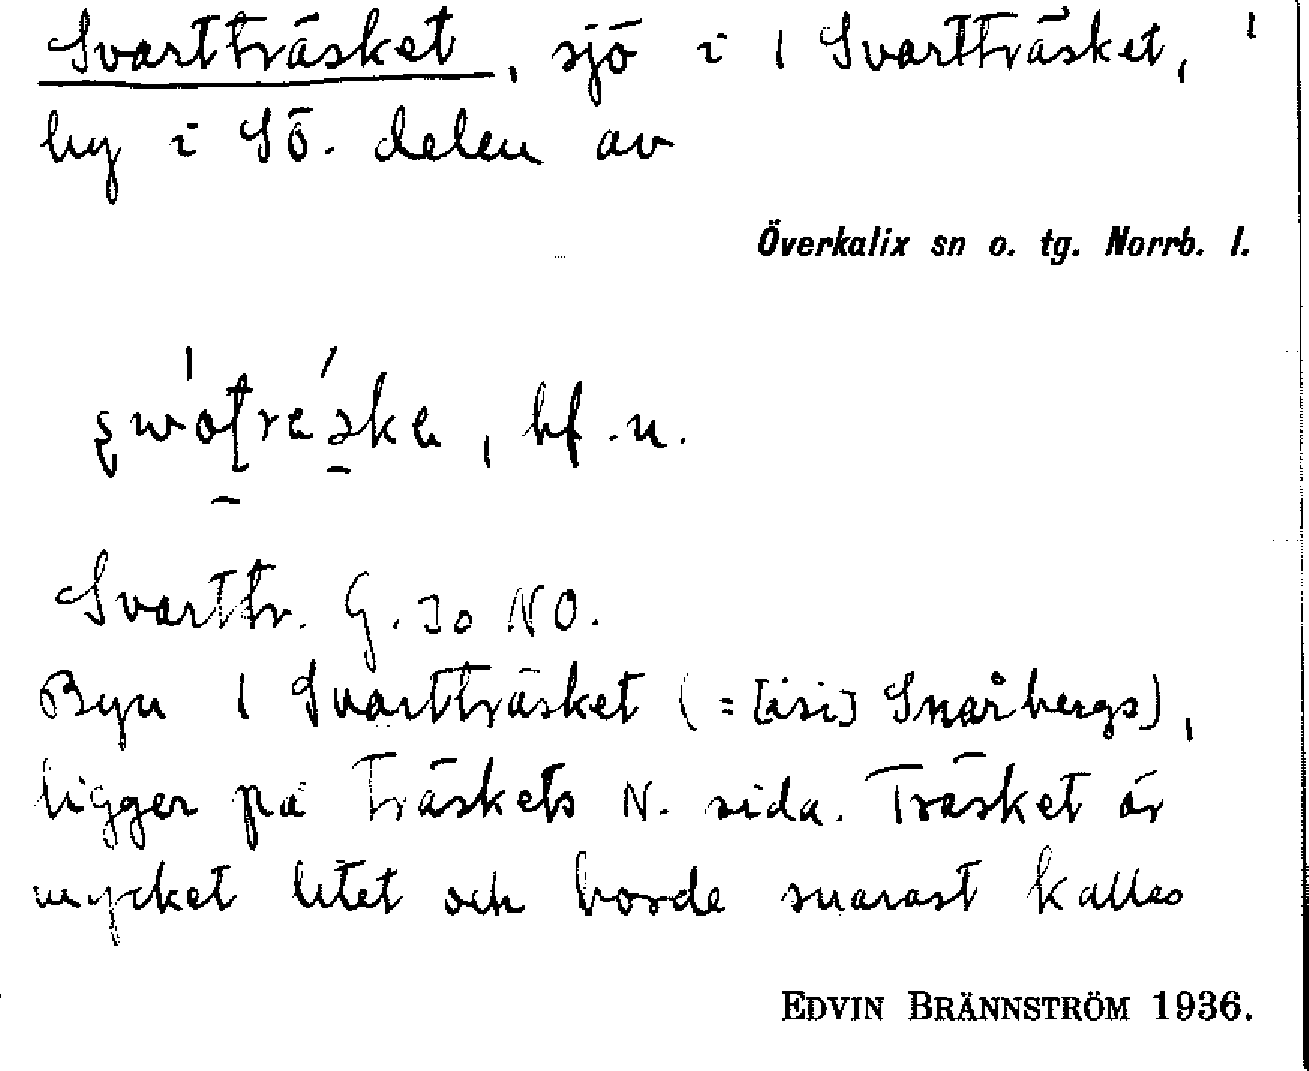 Svartträsket, sjö i 1 Svartträsket,
by i SÖ. delen av
Överkalix sn o. tg. Norrb. l.
bf. n.
Svarttr. G. 30 NO.
Byn 1 Svartträsket (= [isi] Snårbergs),
ligger på Träskets N. sida. Träsket är
mycket litet och borde snarast kallas
EDVIN BRÄNNSTRÖM 1936.